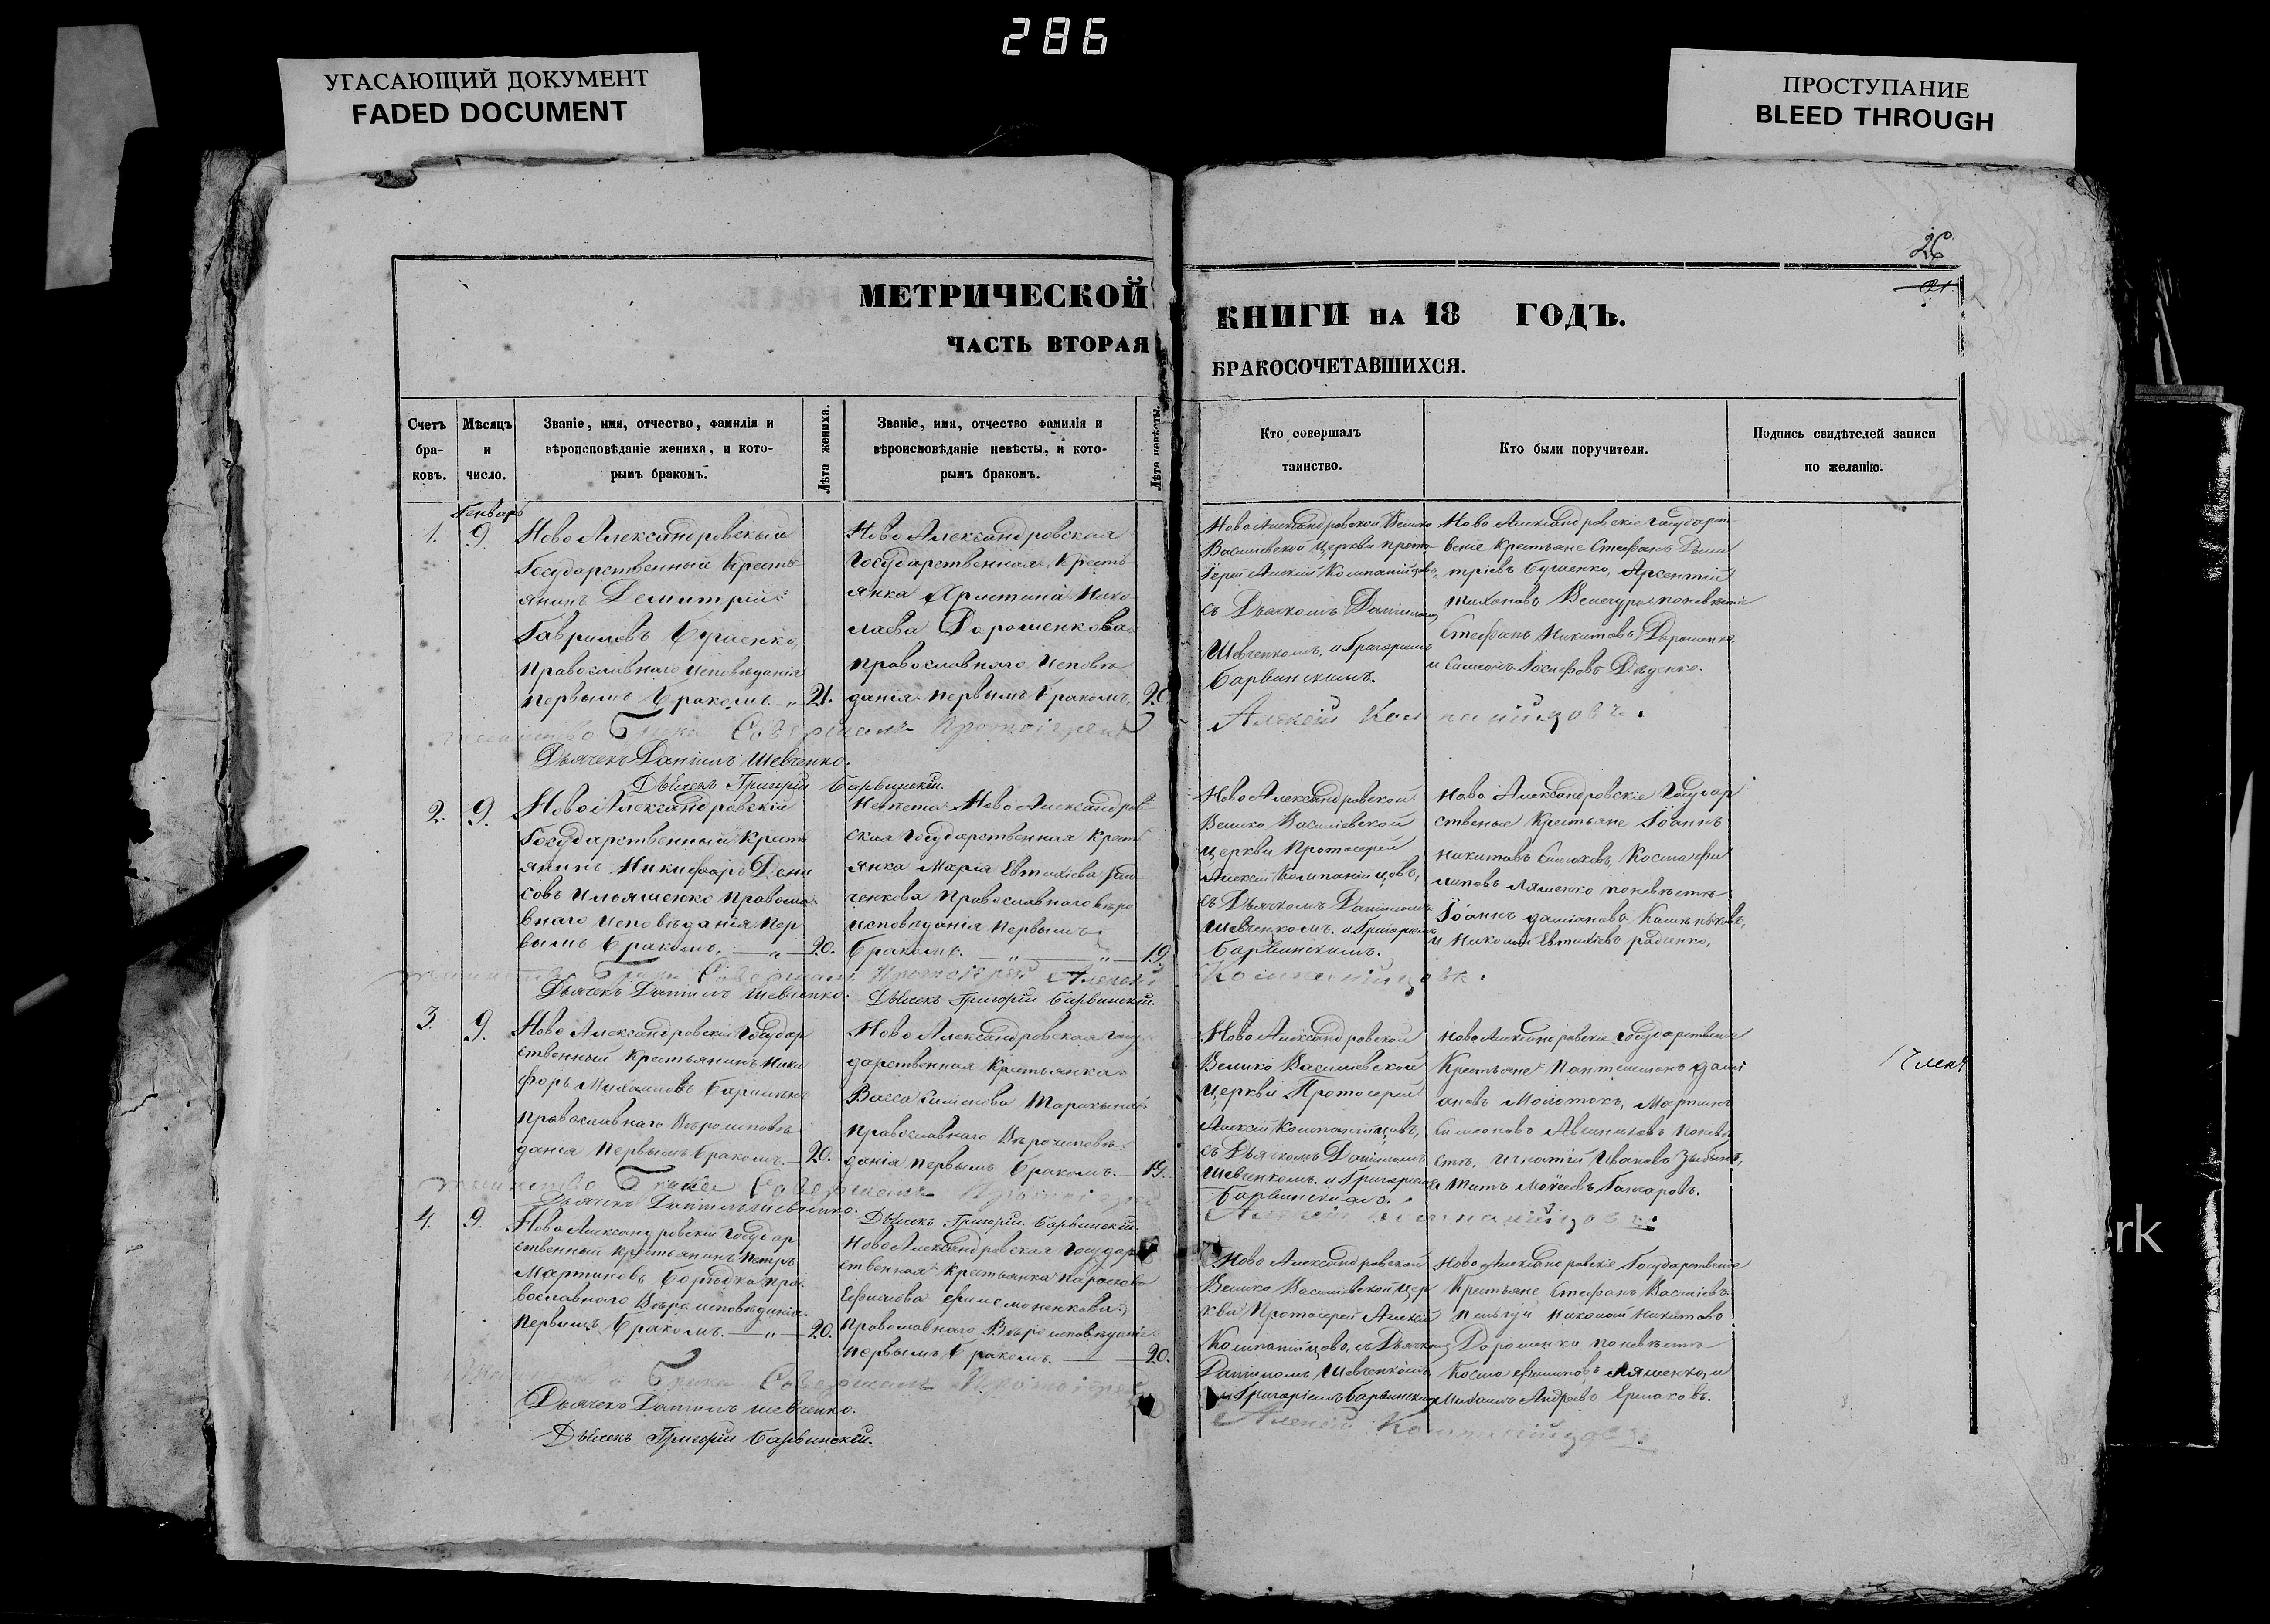 286
УГАСАЮЩИЙ ДОКУМЕНТ
FADED DOCUMENT
ПРОСТУПАНИЕ
BLEED THROUGH
26
МЕТРИЧЕСКОЙ
ЧАСТЬ ВТОРАЯ
КНИГИ НА 18 ГОДЪ.
БРАКОСОЧЕТАВШИХСЯ.
Счетъ
бра-
ковъ.
Мѣсяцъ
и
число.
Званіе, имя, отчество, фамилія и
вѣроисповѣданіе жениха, и кото-
рымъ бракомъ.
Лѣта жениха.
Званіе, имя, отчество фамилія и
вѣроисповѣданіе невѣсты, и кото-
рымъ бракомъ.
Лѣта невѣсты.
Кто совершалъ
таинство.
Кто были поручители.
Подпись свидѣтелей записи
по желанію.
Генварь
1.
9.
Ново Александровскый
Государственный Кресть
янинъ Демитрій
Гавриловъ Бушенко,
православнаго исповѣданія
первымъ бракомъ.
21.
Ново Александровская
Государственная Кресть
янка Христина Нико
лаева Дорошенкова
православнаго исповѣ
данія первымъ бракомъ.
20
Ново Александровской Велико
Василіевской Церкви прото
Іерей Алексій Компанійцовъ,
съ Дьячкомъ Даніиломъ
Шевченкомъ, и Григоріемъ
Барвинскимъ.
Ново Александровскіе Государст
венiе Крестьяне Стефанъ Дими
тріевъ Бушенко, Арсентій
Стефанъ Никитовъ Дорошенко
и Симеонъ Іосифовъ Дѣденко.
таинство Брака Совершалъ Протоіерей
Алексій Компанійцовъ.
Дьячекъ Даніилъ Шевченко.
Дьячекъ Григорій Барвинскій.
2.
9.
Ново Александровскій
Государственный Кресть
янинъ Никифоръ Дени
совъ Ильяшенко Правосла
внаго исповѣданія пер
вымъ бракомъ.
20.
Невѣста Ново Александров
ская Государственная Кресть
янка Марія Евтихіева Рад
ченкова Православнаго вѣро
исповѣданія первымъ
бракомъ.
19.
Ново Александровской
Велико Василіевской
Церкви Протоіерей
Алексій Компанійцовъ,
съ Дьячкомъ Даніиломъ
Шевченкомъ, и Григоріемъ
Барвинскимъ.
Ново Александровскіе Государ
ственые Крестьяне Іоаннъ
Никитовъ Косма Фи
липовъ Ляшенко поневѣстѣ
Іоаннъ Даміановъ
и Николай Евтихіевъ Радченко,
Брака Совершалъ Протоіерей Алексій
Компанійцовъ.
Дьячекъ Даніилъ Шевченко.
Дьячекъ Григорій Барвинскій.
3.
9.
Ново Александровскій Государ
ственный Крестьянинъ Ники
форъ Михаиловъ
Православнаго Вѣроисповѣ
данія первымъ бракомъ.
20.
Ново Александровская Госу
дарственная Крестьянка
Васса Симеонова
Православнаго Вѣроисповѣ
данія первымъ бракомъ.
19.
Ново Александровской
Велико Василіевской
Церкви Протоіерей
Алексій Компанійцовъ,
съ Дьячкомъ Даніиломъ
Шевченкомъ, и Григоріемъ
Барвинскимъ.
Ново Александровскіе Государственіе
Крестьяне Пантелеимонъ Дамі
ановъ Молотокъ, Мартинъ
Симеоновъ поневѣ
стѣ, Игнатій Ивановъ
и Титъ Моѵсеевъ
Членъ
Таинство Брака Совершалъ
Алексій Компанійцовъ.
Дьячекъ Даніилъ Шевченко.
Дьячекъ Григорій Барвинскій.
4.
9.
Ново Александровскій Государ
ственный Крестьянинъ Петръ
Мартиновъ Бородка пра
вославнаго Вѣроисповѣданія
первымъ бракомъ.
20.
Ново Александровская Государ
ственная Крестьянка Параскева
Ефимова
Православнаго Вѣроисповѣданія
первымъ бракомъ.
20.
Ново Александровской
Велико Василіевской Цер
кви Протоіерей Алексій
Компанійцовъ, съ Дьячкомъ
Даніиломъ Шевченкомъ,
и Григоріемъ Барвинскимъ
Ново Александровскіе Государственіе
Крестьяне Стефанъ Василіевъ
Николай Никитовъ
Дорошенко поневѣстѣ
Косма Филиповъ Ляшенко, и
Михаилъ Андреевъ Ермаковъ.
Брака Совершалъ Протоіерей
Алексій Компанійцовъ.
Дьячекъ Даніилъ Шевченко.
Дьячекъ Григорій Барвинскій.
rk